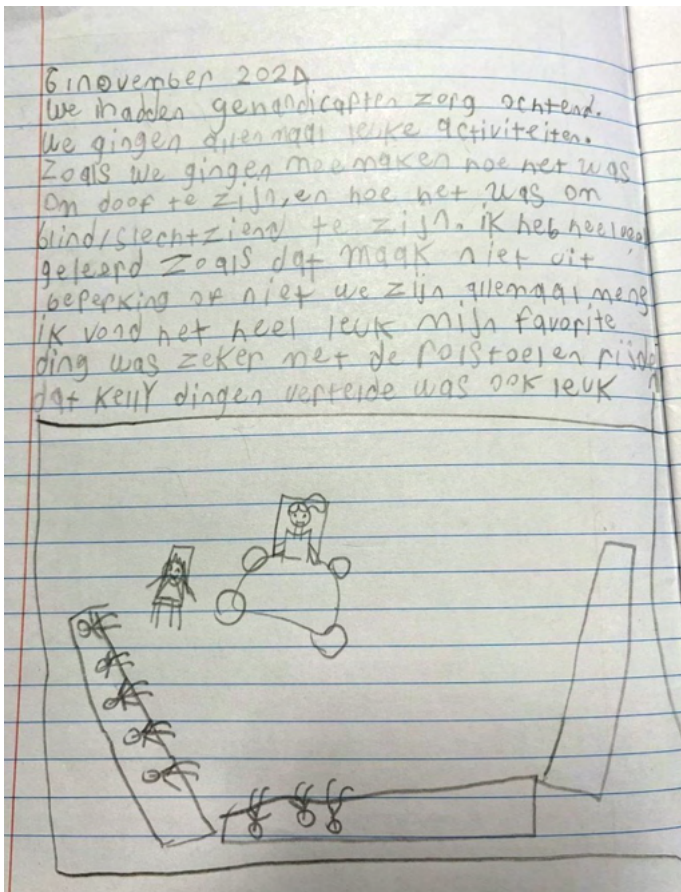 6 november 2024
We hadden gehandicapten zorg ochtend.
We gingen allemaal leuke activiteiten.
Zoals we gingen meemaken hoe het was
om doof te zijn, en hoe het was om
blind/slechtziend te zijn. ik heb heel veel
geleerd zoals dat maak niet uit
beperking of niet we zijn allemaal mens
ik vond het heel leuk mijn favorite
ding was zeker met de rolstoelen rijden
dat Kelly dingen vertelde was ook leuk